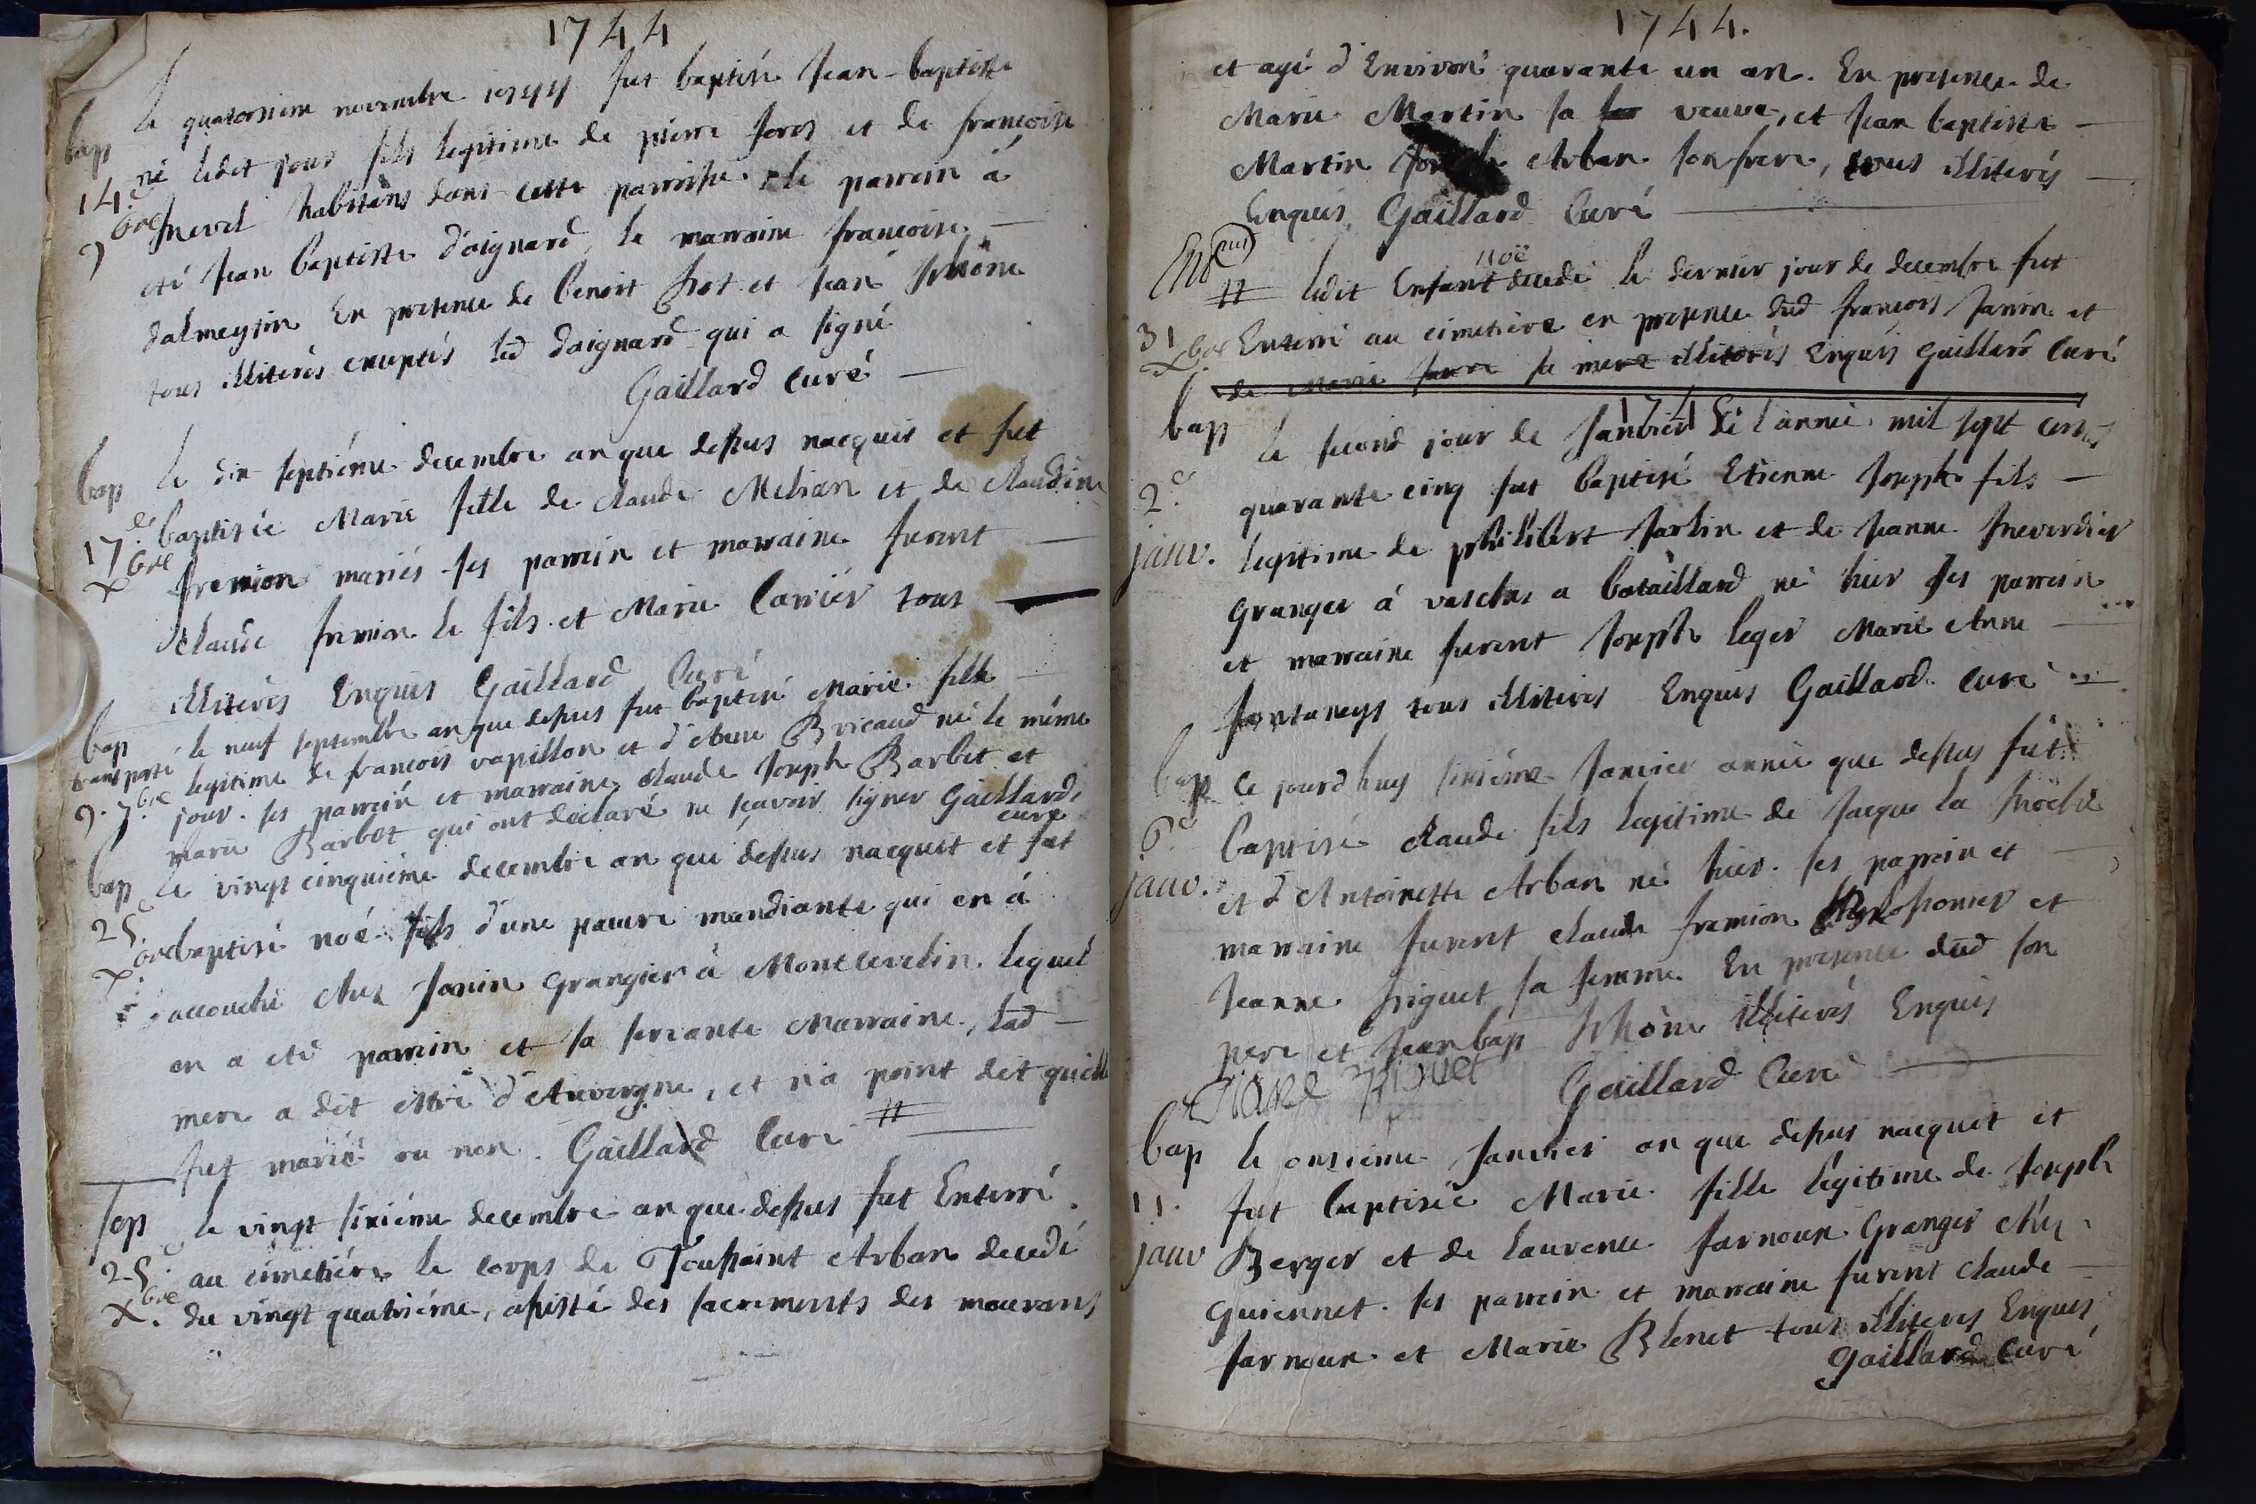 1744
bap le quatorsieme novembre 1744 fut baptisé Jean-baptiste
14.e 9bre né ledit jour fils legitime de pierre foros et de francoise
Trevel habitans dans cette parroisse. le parrein à
eté Jean baptiste d'aignard, le marraine francoise
dalmeysin En presence de benoit frot et Jean Thône
tous illiterés exceptés led d'aignard qui a signé
Gaillard Curé
bap le dix septiéme decembre an que dessus nacquit et fut
17.e xbre baptisée Marie fille de claude Melian et de claudine
fremion mariés ses parrein et marraine furent
claude fremion le fils et Marie Carrier tous
illiterés Enquis Gaillard Curé
bap transporté le neuf septembre an que dessus fut baptisé Marie fille
9. 7.bre legitime de francois vapillon et d'Anne Bricaud né le même
jour. ses parrein et marraine claude Joseph Barbet et
marie Barbet qui ont declaré ne scavoir signer Gaillard
curé
bap le vingt cinquiéme decembre an que dessus nacquit et fut
25.e xbre baptisé noé fils d'une pauvre mandiante qui en á
accouché chez Janin Grangier à Montlevelin. lequel
en a eté parrein et sa servante Marraine, lad
mere a dit estre d'Auvergne, et n'a point dit quelle
fut mariée ou non. Gaillard Curé #
sep le vingt sixiéme decembre an que dessus fut Enterré
25.e xbre. au cimetiére le corps de Toussaint Arban decedé
du vingt quatriéme, assisté des sacrements des mourans
1744.
et agé d'Environ quarante un an. En presence de
Marie Martin sa veuve, et Jean baptiste
Martin Arban son frere, tous illiterés
Enquis Gaillard Curé
noë
# ledit Enfant decedé le dernier jour de decembre fut
31 xbre Enterré au cimetiére en presence dud francois Janin et
de Marie sa mere illiterés Enquis Gaillard Curé
174
bap le second jour de Janvier de l'année mil sept cents
2.e quarante cinq fut baptisé Etienne Joseph fils
janv. legitime de philibert Jarlin et de Jeanne Treverdier
granger á vaselus a bataillard né hier ses parrein
et marraine furent Joseph leger Marie Anne
fontaneys tous illiterés Enquis Gaillard curé
bap ce jourd huy sixiéme Janvier année que dessus fut
6.e baptisé claude fils legitime de Jacque la
janv. et d'Antoinette Arban né hier. ses parrein et
marraine furent claude fremion et
Jeanne friguet sa femme. En presence dud son
pere et Jean bap Thône illiterés Enquis
Gaillard Curé
bap le onsieme Janvier an que dessus nacquit et
11. fut baptisée Marie fille légitime de Joseph
janv Berger et de laurence farnoux Granger chez
guiennet. ses parrein et marraine furent claude
farnoux et Marie Blenet tous illiteres Enquis
Gaillard Curé